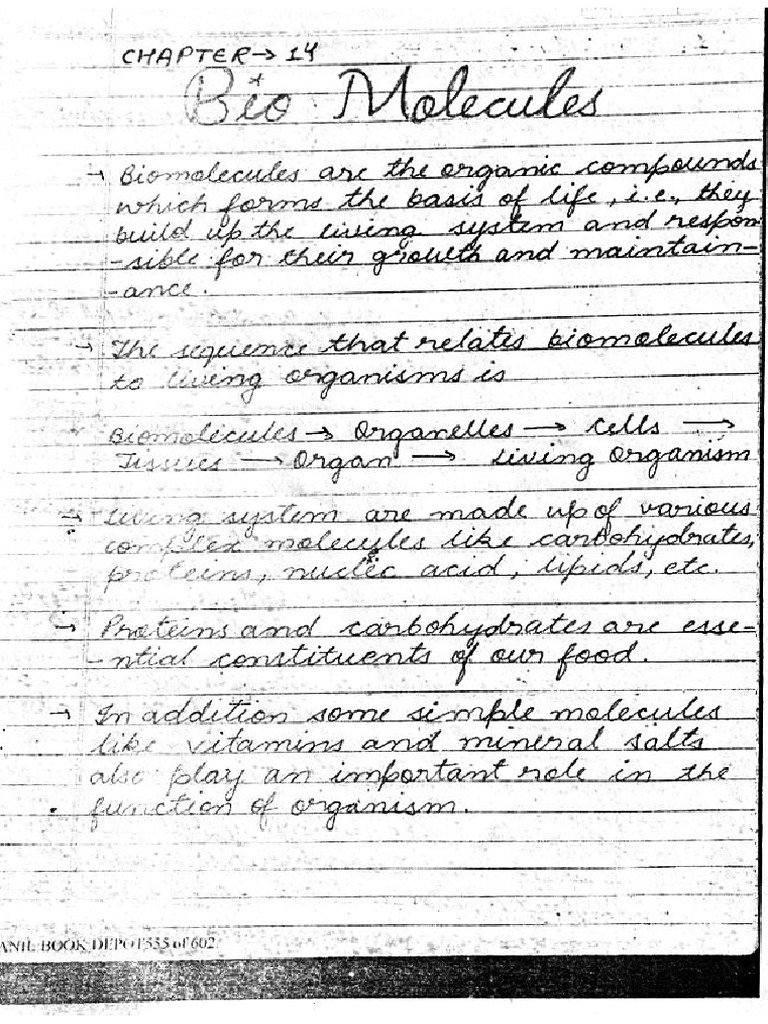 CHAPTER → 14
Bio Molecules
→ Biomolecules are the organic compounds
which forms the basis of life, i.e., they
build up the living system and respon
-sible for their growth and maintain-
-ance.
→ The sequence that relates biomolecules
to living organisms is
Biomolecules → Organelles → Cells →
Tissues → Organ → Living Organism
→ Living system are made up of various
complex molecules like carbohydrates,
proteins, nucleic acid, lipids, etc.
→ Proteins and carbohydrates are esse-
-ntial constituents of our food.
→ In addition some simple molecules
like vitamins and mineral salts
also play an important role in the
function of organism.
ANIL BOOK DEPOT 555 of 602